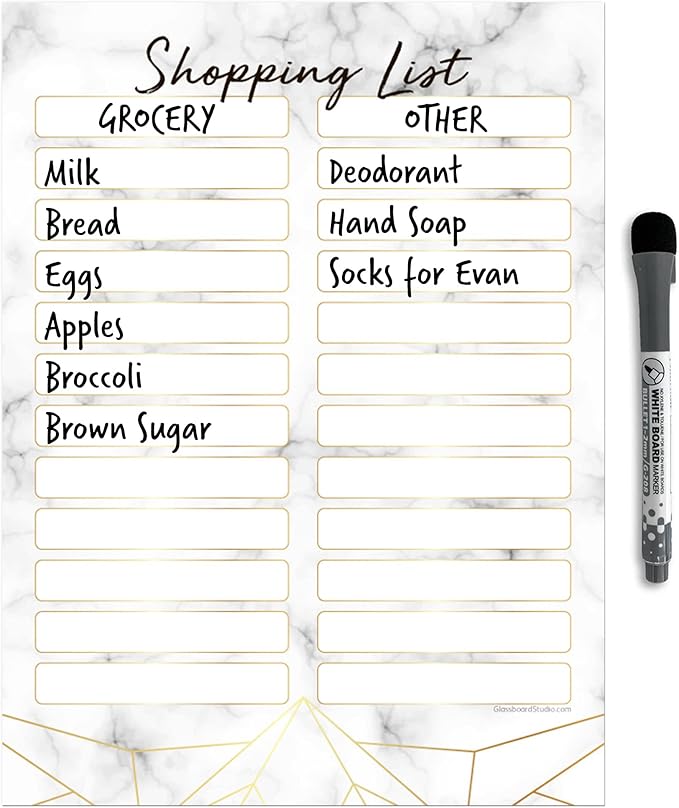 Shopping List
GROCERY
Milk
Bread
Eggs
Apples
Broccoli
Brown Sugar
OTHER
Deodorant
Hand Soap
Socks for Evan
GlassboardStudio.com
WHITE BOARD MARKER
BULLET 1-2mm/G-208